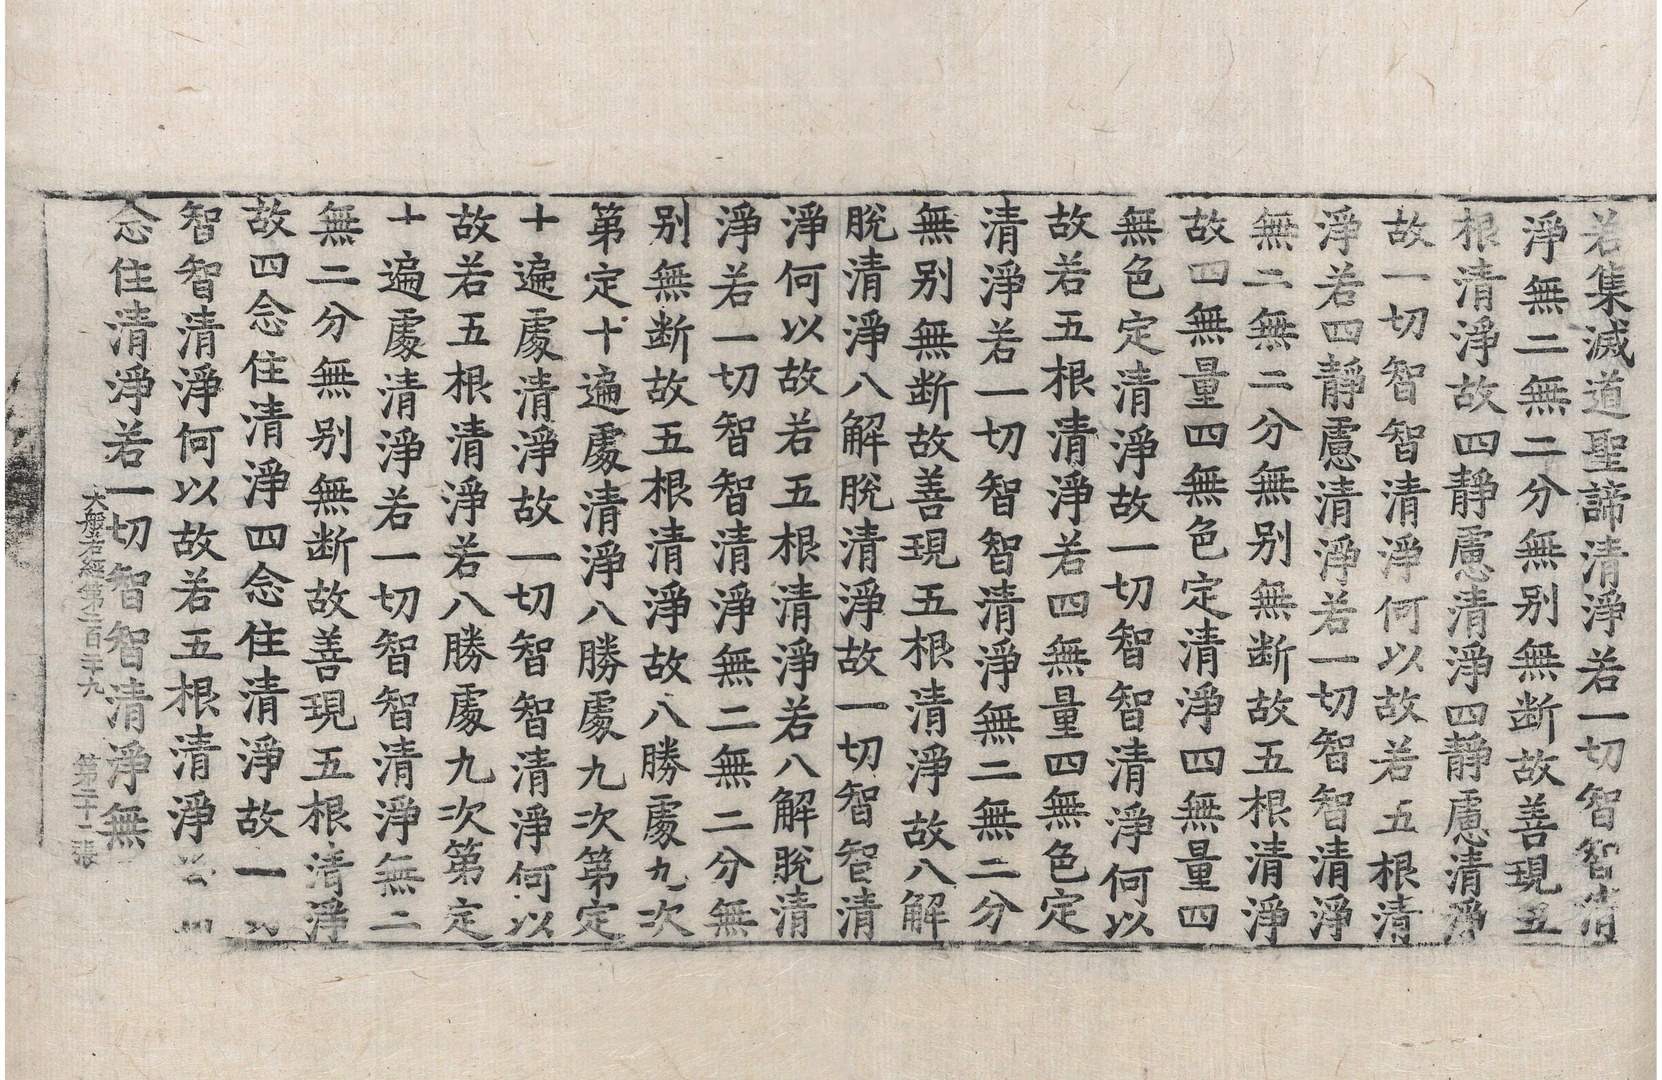 若集滅道聖諦清淨若一切智智清
淨無二無二分無别無断故善現五
根清淨故四靜慮清淨四靜慮清淨
故一切智智清淨何以故若五根清
淨若四靜慮清淨若一切智智清淨
無二無二分無别無断故五根清淨
故四無量四無色定清淨四無量四
無色定清淨故一切智智清淨何以
故若五根清淨若四無量四無色定
清淨若一切智智清淨無二無二分
無别無断故善現五根清淨故八解
脫清淨八解脫清淨故一切智智清
淨何以故若五根清淨若八解脫清
淨若一切智智清淨無二無二分無
别無断故五根清淨故八勝處九次
第定十遍處清淨八勝處九次第定
十遍處清淨故一切智智清淨何以
故若五根清淨若八勝處九次第定
十遍處清淨若一切智智清淨無二
無二分無别無断故善現五根清淨
故四念住清淨四念住清淨故一
智智清淨何以故若五根清淨
念住清淨若一切智智清淨無
大般若經第二百 九 第二十二張